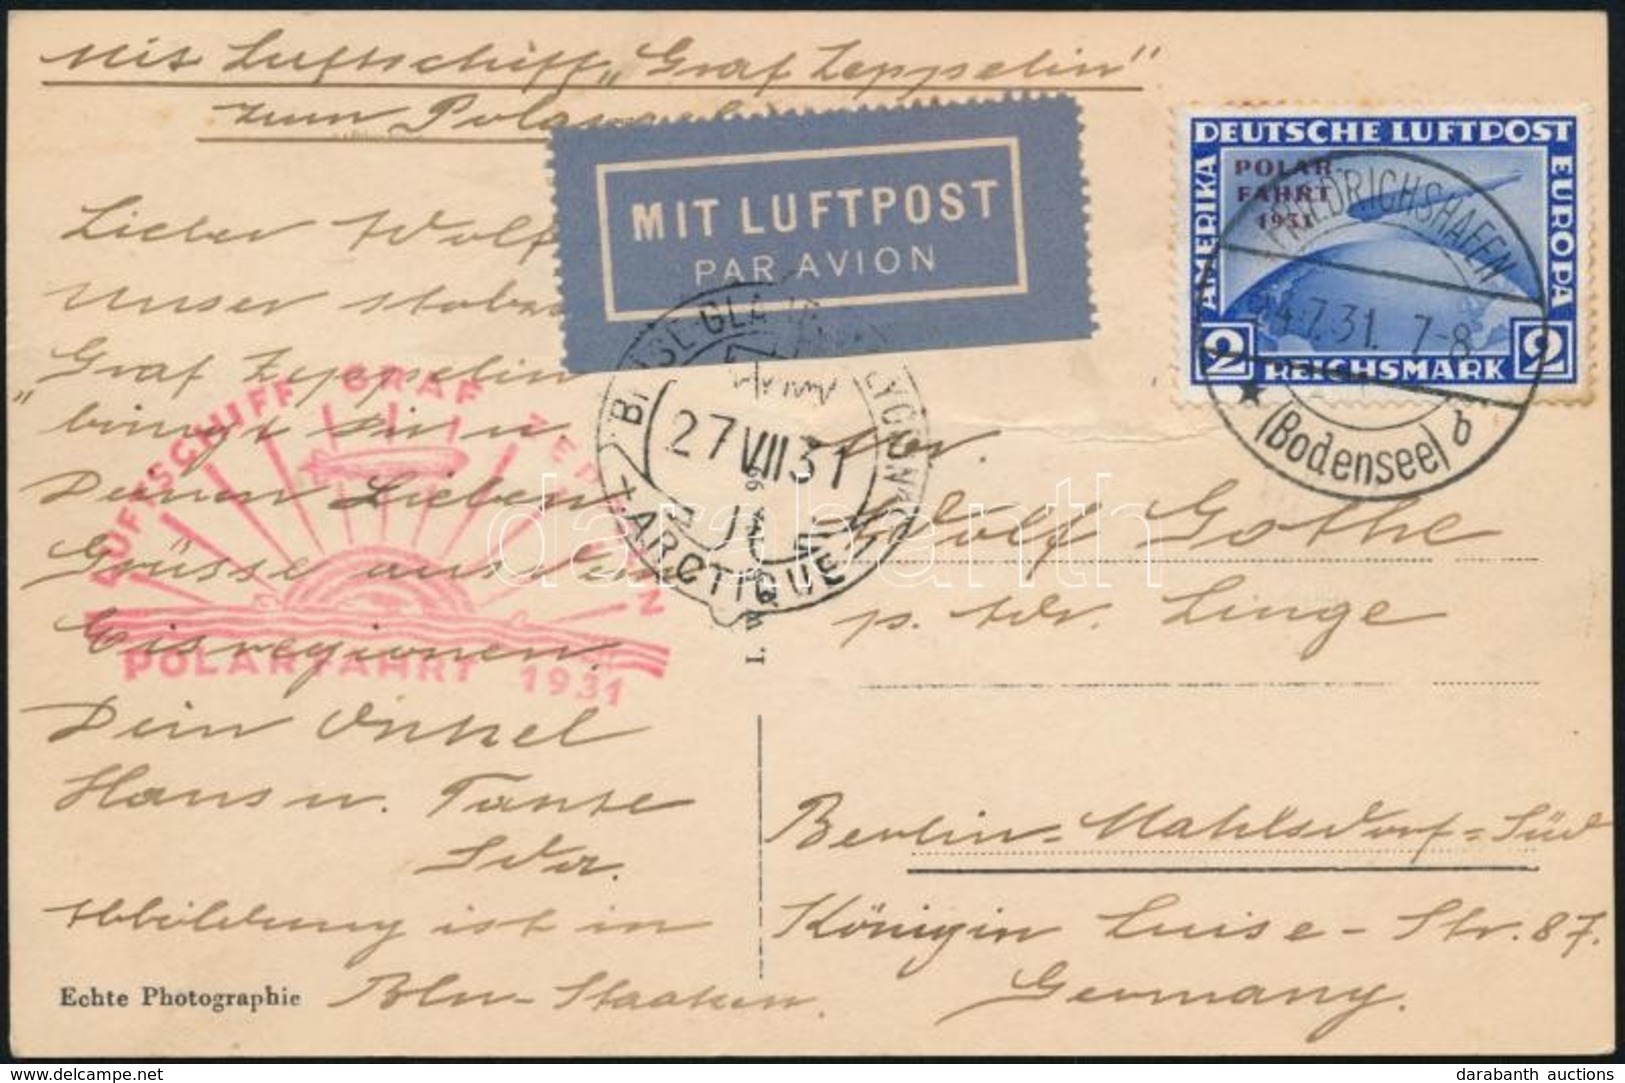 Mit Luftschiff „Graf Zeppelin"
zum
MIT LUFTPOST
PAR AVION
DEUTSCHE LUFTPOST
AMERIKA
EUROPA
POLAR
FAHRT
1931
2 REICHSMARK 2
FRIEDRICHSHAFEN
24.7.31. 7-8
(Bodensee) b
Lieber Wolf
Unser stolzer
Graf Zeppelin
bringt Dir u
Deinen Lieben
Grüsse aus den
Eisregionen.
Dein Onkel
Hans u. Tante
Abbildung ist in
Bln-Staaken.
Echte Photographie
LUFTSCHIFF GRAF ZEPPELIN
POLARFAHRT 1931
27 VII 31
ARCTIQUE
Hr.
Wolf Gothe
p. Adr. Linge
Berlin-Mahlsdorf-Süd
Königin Luise-Str. 87.
Germany.
darabanth
delcampe.net
darabanth auctions